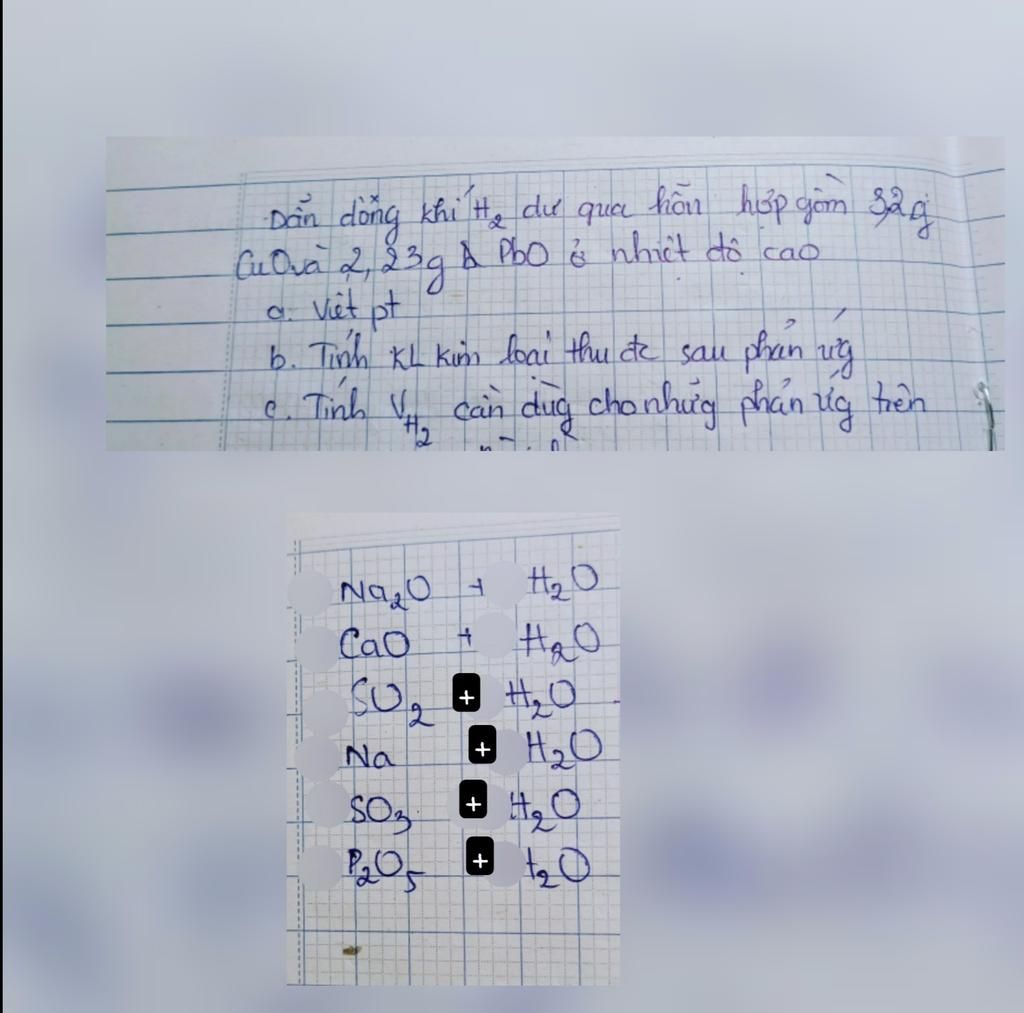 Dẫn dòng khí H₂ dư qua hỗn hợp gồm 3,2g
CuO và 2,23g PbO ở nhiệt độ cao
a. Viết pt
b. Tính KL kim loại thu đc sau phản ứg
c. Tính V H₂ cần dùg cho nhữg phản ứg trên
Na₂O + H₂O
CaO + H₂O
SO₂ + H₂O
Na + H₂O
SO₃ + H₂O
P₂O₅ + H₂O